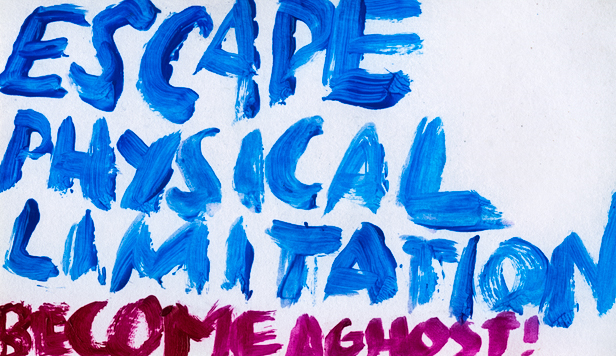 ESCAPE
PHYSICAL
LIMITATION
BECOME A GHOST!